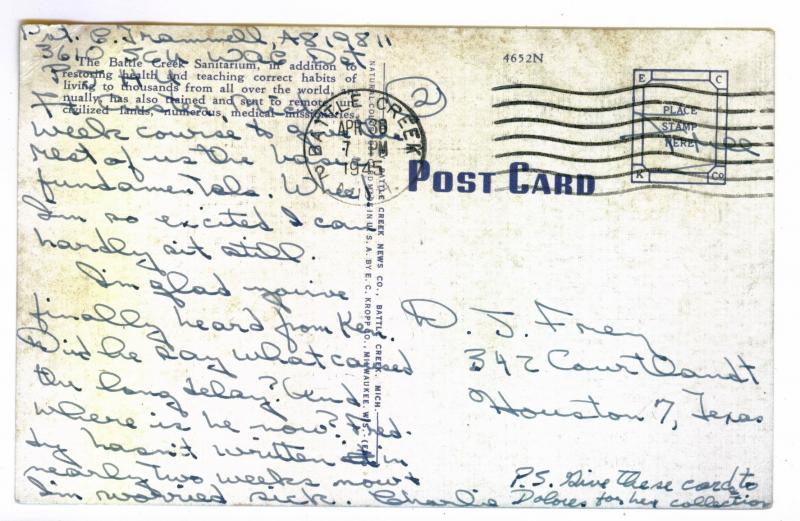 Pvt. C. Trammell, A819811
3610 SCU WAC Det
The Battle Creek Sanitarium, in addition to
restoring health and teaching correct habits of
living to thousands from all over the world, an-
nually has also trained and sent to remote, un-
civilized lands, numerous medical missionaries.
week course to give
rest of us the
fundamentals. Whee
I'm so excited I can
hardly sit still.
I'm glad you've
finally heard from Ken.
Did he say what caused
the long delay? And
where is he now? Fred-
dy hasn't written in
nearly two weeks now &
I'm worried sick. Charlie
NATURAL COLOR POST CARD MADE IN U. S. A. BY E. C. KROPP CO., MILWAUKEE, WIS.
BATTLE CREEK NEWS CO., BATTLE CREEK, MICH.
2
BATTLE CREEK
APR
7 PM
4652N
E C
PLACE
STAMP
HERE
K Co
Free
POST CARD
D. J. Frey
342 Courtlandt
Houston 7, Texas
P.S. Give these cards to
Dolores for her collection